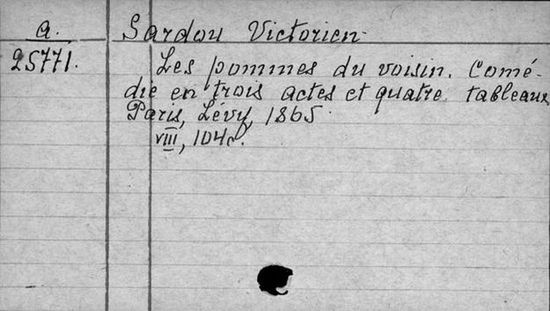 a. Sardou Victorien
25771. Les pommes du voisin. Comé-
die en trois actes et quatre tableaux
Paris, Lévy, 1865.
VIII, 104 c.